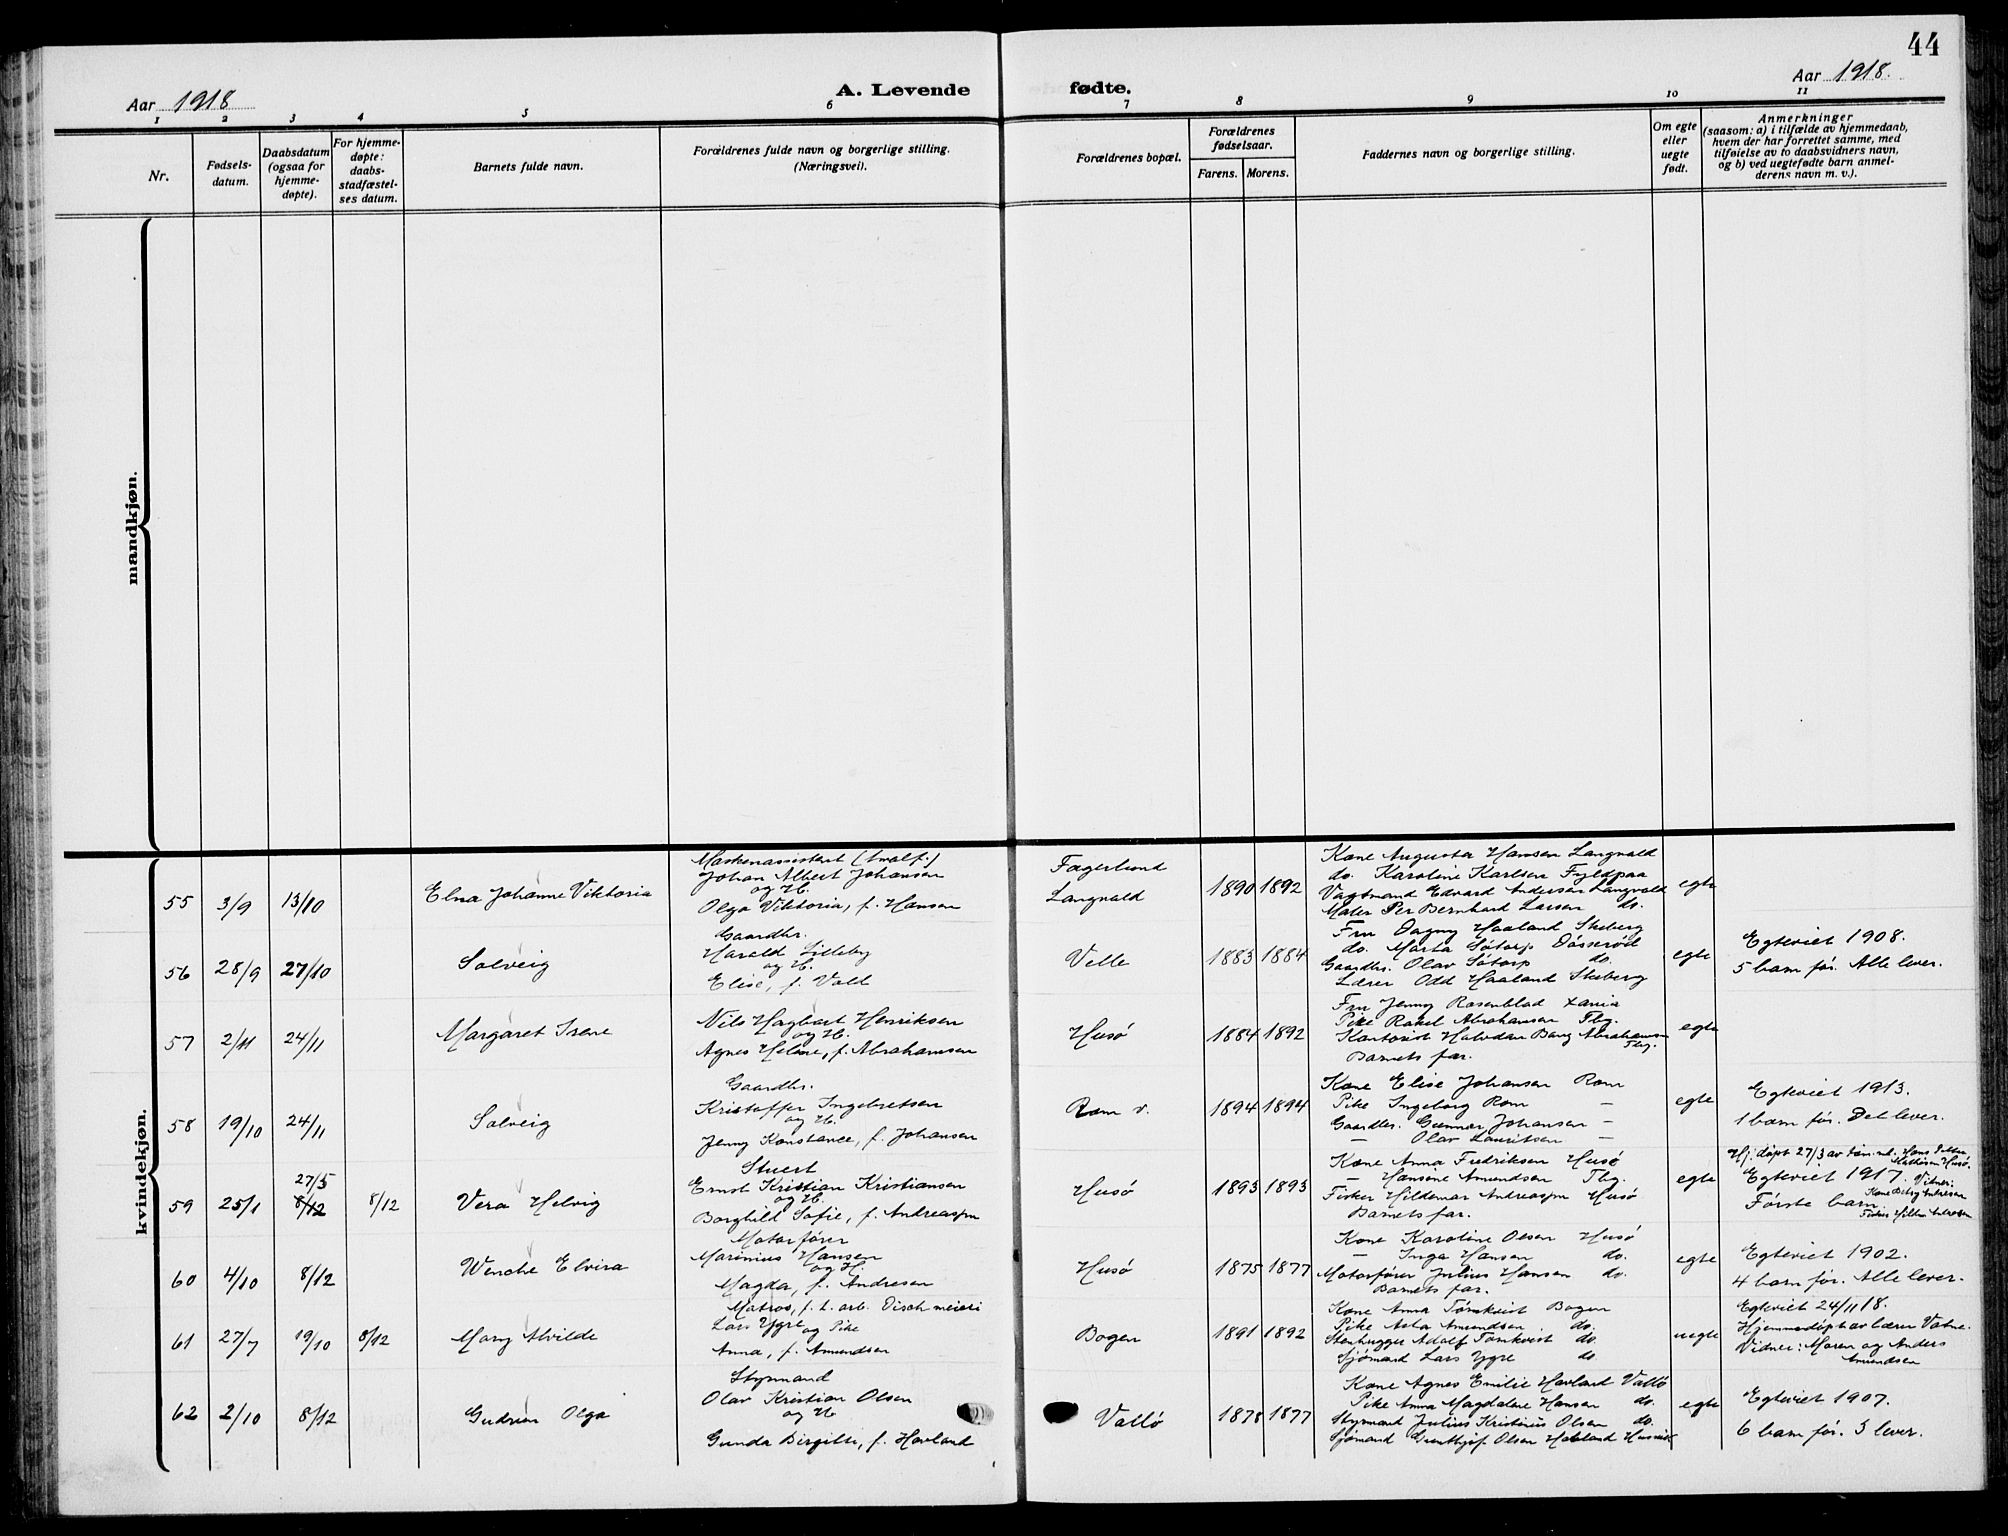 44
Aar 1918
A. Levende fødte.
Aar 1918.
1 2 3 4 5 6 7 8 9 10 11
Nr.
Fødsels-
datum.
Daabsdatum
(ogsaa for
hjemme-
døpte).
For hjemme-
døpte:
daabs-
stadfæstel-
ses datum.
Barnets fulde navn.
Forældrenes fulde navn og borgerlige stilling.
(Næringsvei).
Forældrenes bopæl.
Forældrenes
fødselsaar.
Farens. Morens.
Faddernes navn og borgerlige stilling.
Om egte
eller
uegte
født.
Anmerkninger
(saasom: a) i tilfælde av hjemmedaab,
hvem der har forrettet samme, med
tilføielse av to daabsvidners navn,
og b) ved uegtefødte barn anmel-
derens navn m. v.).
mandkjøn.
kvindekjøn.
55 3/9 13/10
Elna Johanne Viktoria
Maskinassistent
Johan Albert Johansen
og H.
Olga Viktoria, f. Hansen
Fagerlund
Langvald
1890 1892
Kone Augusta Hansen Langvald
do. Karoline Karlsen
Vagtmand Edvard Andersen Langvald
Maler Per Bernhard Larsen do.
egte
56 28/9 27/10
Solveig
Gaardbr.
Harald Lilleby
og H.
Elise, f. Vold
Velle
1883 1884
Fru Dagny Haaland Skeberg
do. Marta Søtorp
Gaardbr. Olav Søtorp do.
Lærer Odd Haaland Skeberg
egte
Egteviet 1908.
5 barn før. Alle lever.
57 2/11 24/11
Margaret Irene
Nils Hagbart Henriksen
og H.
Agnes Helene, f. Abrahamsen
Husø
1884 1892
Fru Jenny Rosenblad
Pike Rakel Abrahamsen Tbg.
Kontorist Halvdan Bang Abrahamsen
Tbg.
Barnets far.
egte
58 19/10 24/11
Solveig
Gaardbr.
Kristoffer Ingebretsen
og H.
Jenny Konstance, f. Johansen
Rom v.
1894 1894
Kone Elise Johansen Rom
Pike Ingeborg Rom —
Gaardbr. Gunnar Johansen —
— Olav Lauritsen —
egte
Egteviet 1913.
1 barn før. Det lever.
59 25/1 27/3
8/12 8/12
Vera Helvig
Stuert
Ernst Kristian Kristiansen
og H.
Borghild Sofie, f. Andreassen
Husø
1893 1893
Kone Anna Fredriksen Husø
— Hansine Amundsen Tbg.
Fisker Hildemar Andreassen Husø
Barnets far.
egte
Hj. døpt 27/3 av
Egteviet 1917. Vidner:
Første barn
60 4/10 8/12
Wenche Elvira
Motorfører
Marinius Hansen
og H.
Magda, f. Andresen
Husø
1875 1877
Kone Karoline Olsen Husø
— Inga Hansen do.
Motorfører Julius Hansen do.
Barnets far.
egte
Egteviet 1902.
4 barn før. Alle lever.
61 27/7 19/10 8/12
Mary Alvilde
Matros, f. t. arb.
Lars Ygre
og Pike
Anna, f. Amundsen
Bogen
1891 1892
Kone Anna Tørnkvist Bogen
Pike Asta Amundsen do.
Stenhugger Adolf Tørnkvist do.
Sjømand Lars Ygre do.
uegte
Egteviet 24/11 18.
Hjemmedøpt av lærer Vatne.
Vidner: Maren og Anders
Amundsen
62 2/10 8/12
Gudrun Olga
Styrmand
Olav Kristian Olsen
og H.
Gunda Birgitte, f. Havland
Vallø
1878 1877
Kone Agnes Emilie Havland Vallø
Pike Anna Magdalene Hansen do.
Styrmand Julius Kristinius Olsen do.
Sjømand Olsen
egte
Egteviet 1907.
6 barn før. 3 lever.